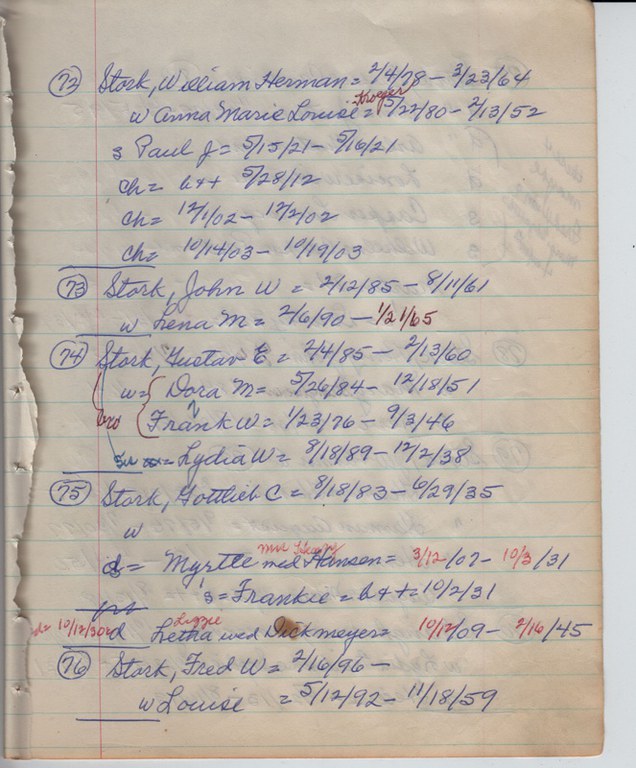 (72) Stork, William Herman = 2/4/78 - 3/23/64
Kroger
w Anna Marie Louise = 5/22/80 - 2/13/52
s Paul J = 5/15/21 - 5/16/21
ch = b++ 5/28/12
ch = 12/1/02 - 12/2/02
ch = 10/14/03 - 10/19/03
(73) Stork, John W = 2/12/85 - 8/11/61
w Lena M = 2/6/90 - 1/21/65
(74) Stork, Gustav E = 2/4/85 - 2/13/60
w = Dora M = 5/26/84 - 12/18/51
bro Frank W = 1/23/76 - 9/3/46
= Lydia W = 8/18/89 - 12/2/38
(75) Stork, Gottlieb C = 8/18/83 - 6/29/35
w
d = Myrtle med Hansen = 3/12/07 - 10/3/31
s = Frankie = b++ = 10/2/31
Lizzie
10/12/30 d Letha wed Dickmeyer = 10/12/09 - 2/16/45
(76) Stork, Fred W = 2/16/96 -
w Louise = 5/12/92 - 11/18/59